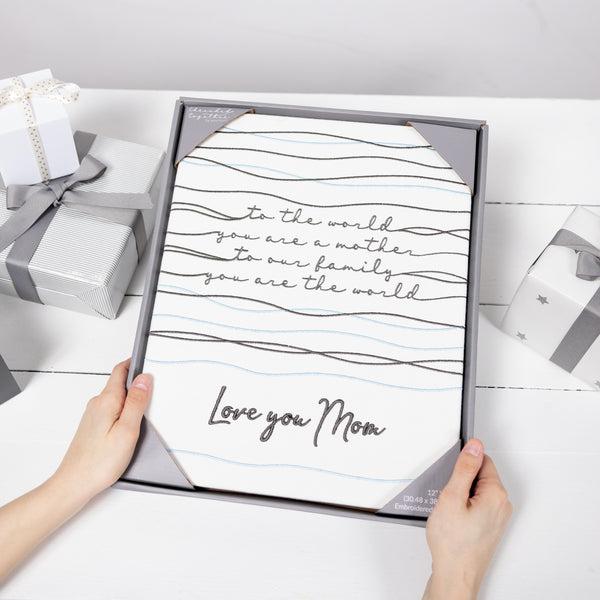 cherished
together
to the world
you are a mother
to our family
you are the world
Love you Mom
12"
(30.48 x 38
Embroidered